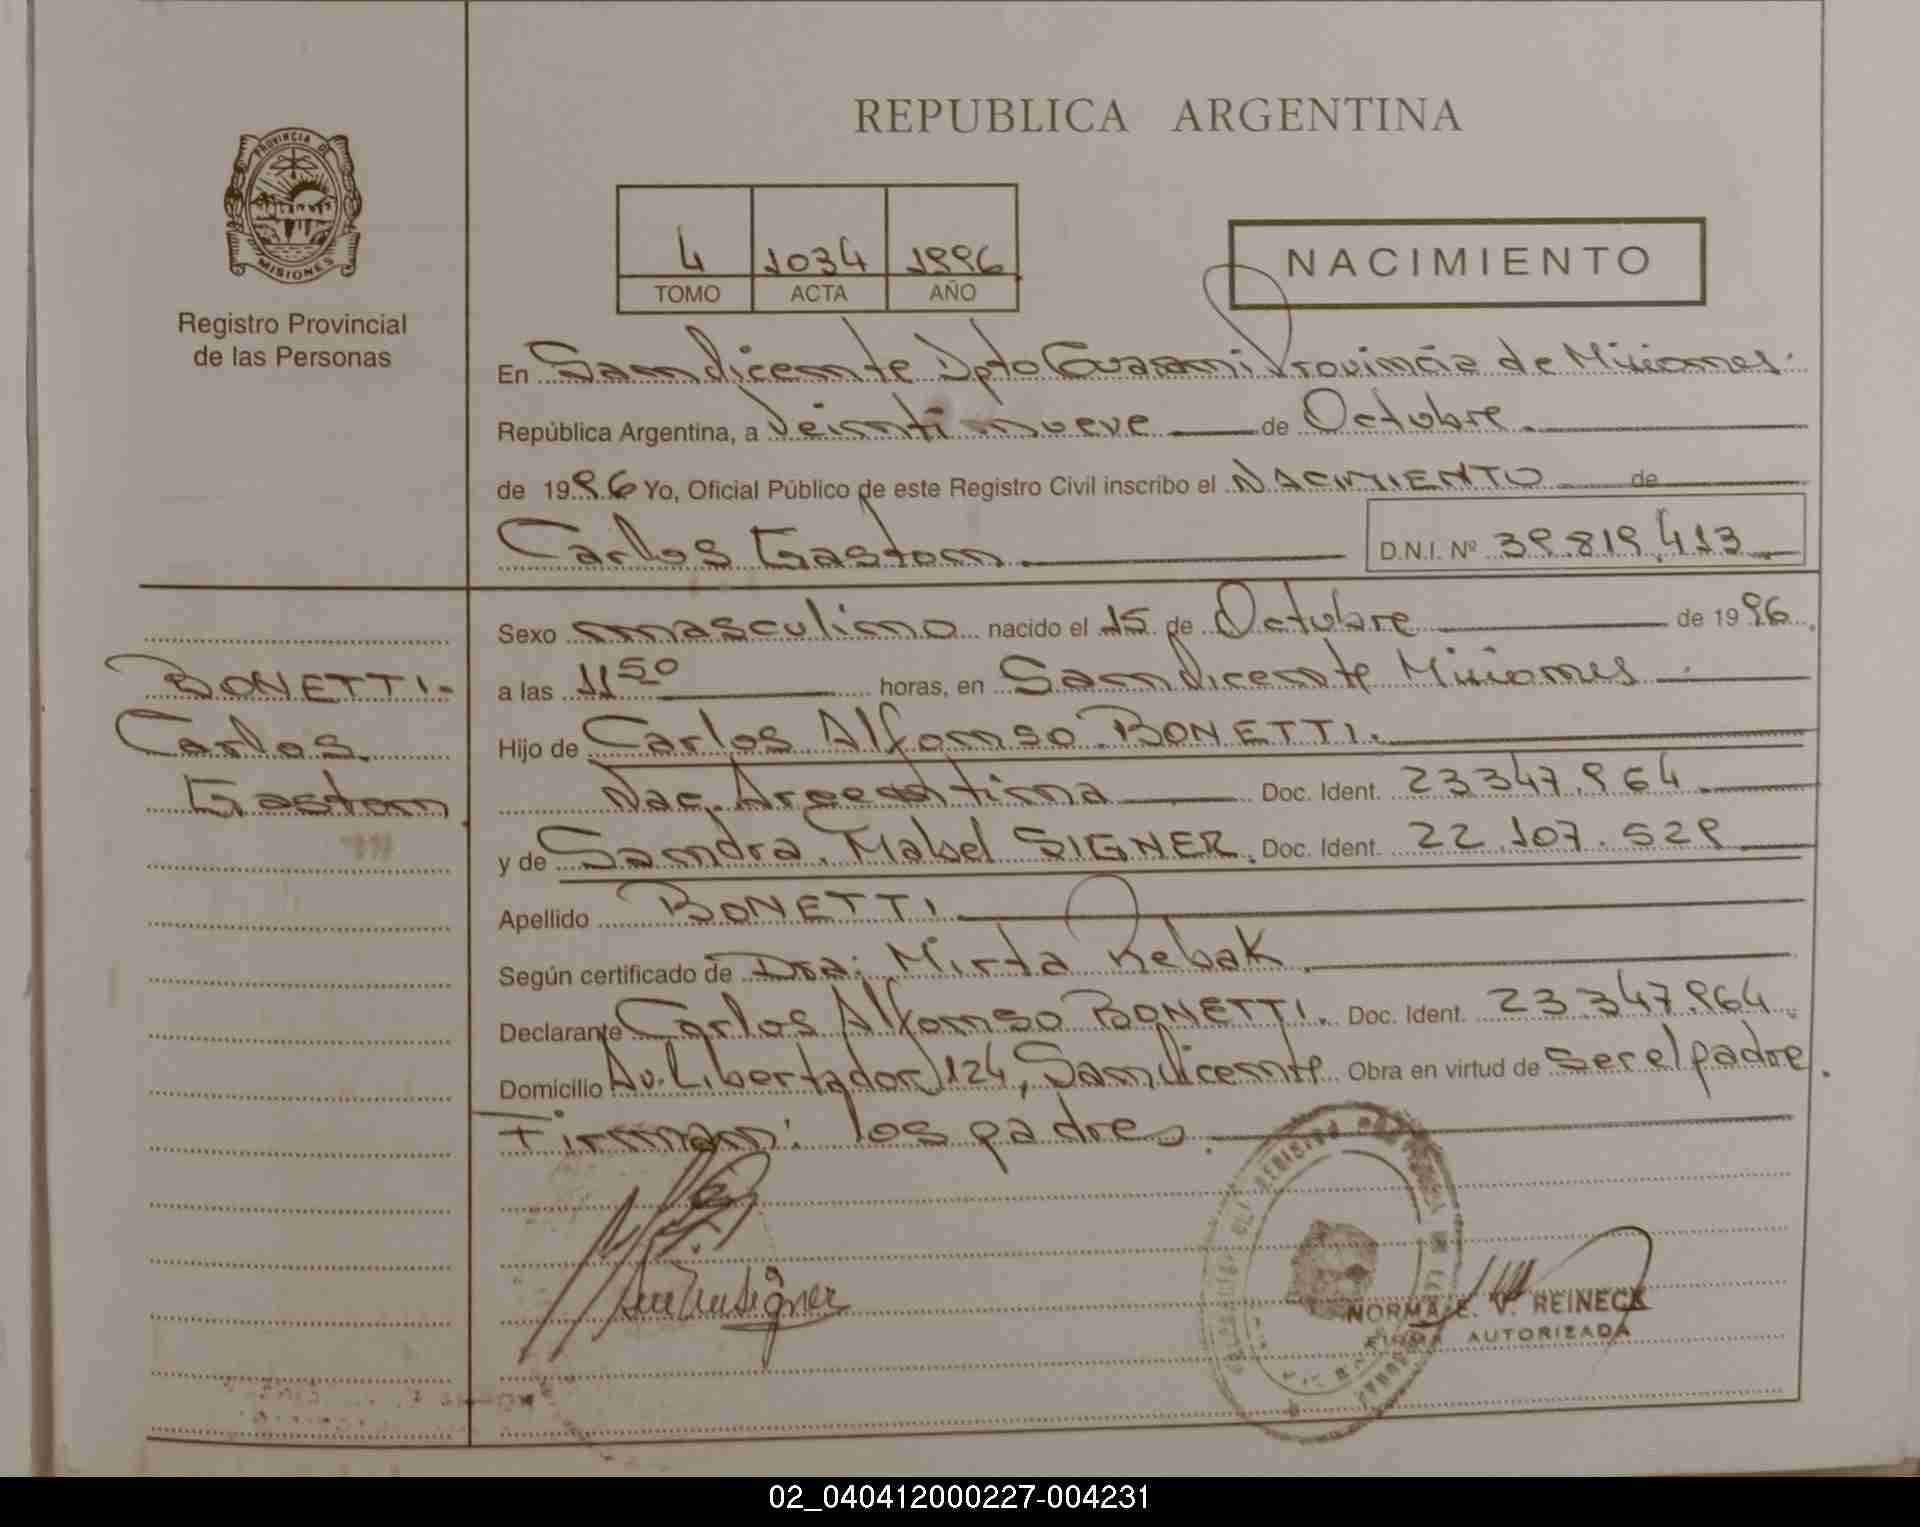 REPUBLICA ARGENTINA
PROVINCIA DE
MISIONES
Registro Provincial
de las Personas
4 1034 1996
TOMO ACTA AÑO
NACIMIENTO
En San Vicente Dpto Guarani Provincia de Misiones.
República Argentina, a Veinti nueve de Octubre.
de 1996 Yo, Oficial Público de este Registro Civil inscribo el NACIMIENTO de
Carlos Gaston. D.N.I. Nº 39.819.413
Sexo masculino nacido el 15 de Octubre de 1996.
a las 11 50 horas, en San Vicente Misiones.
Hijo de Carlos Alfonso BONETTI.
Nac. Argentina Doc. Ident. 23.347.964
y de Sandra Mabel SIGNER. Doc. Ident. 22.107.529
Apellido BONETTI
Según certificado de Dra: Mirta Rebak.
Declarante Carlos Alfonso BONETTI. Doc. Ident. 23.347.964
Domicilio Av. Libertador 124, San Vicente Obra en virtud de ser el padre.
Firman: los padres.
BONETTI.
Carlos
Gaston.
Signer
NORMA E. V. REINECK
FIRMA AUTORIZADA
02_040412000227-004231